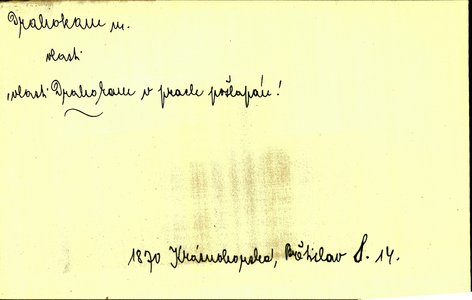 Drahokam m.
vlasti
„vlasti Drahokam v prach pošlapán!
1870 Krásnohorská, Břetislav S. 14.